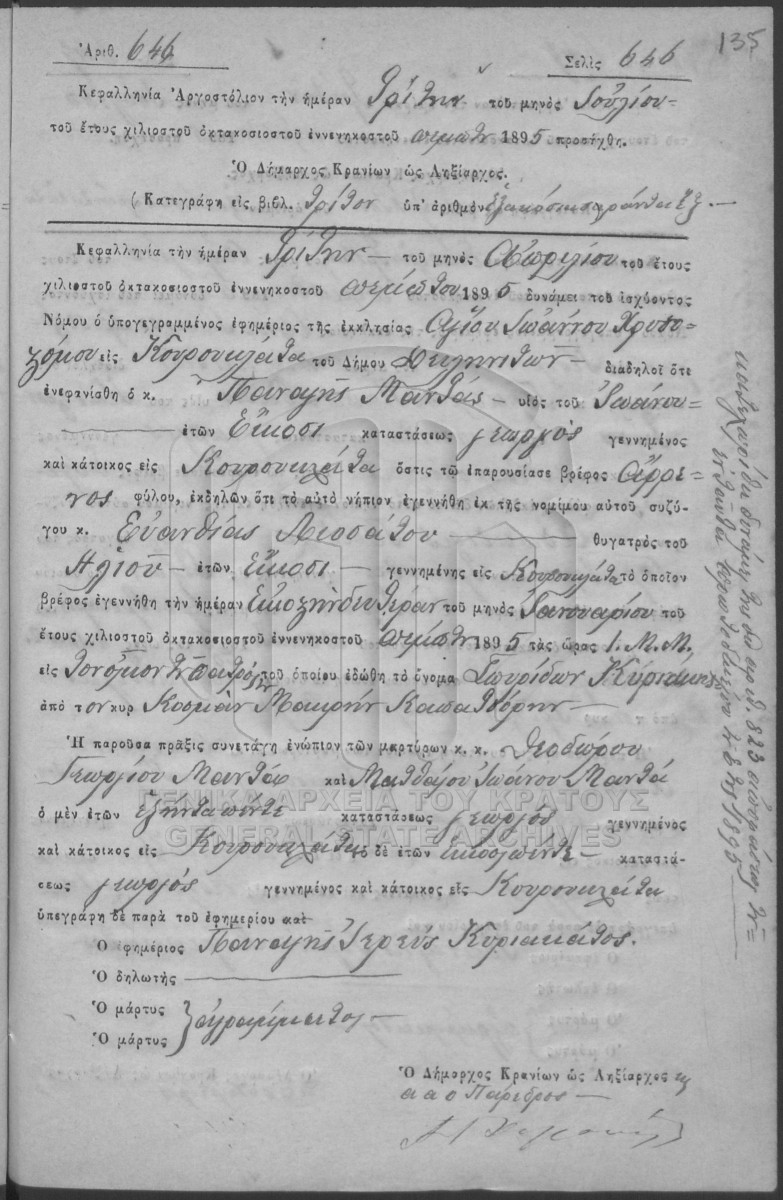 135
Ἀριθ. 646 Σελὶς 646
Κεφαλληνία Ἀργοστόλιον τὴν ἡμέραν Τρίτην τοῦ μηνὸς Ἰουλίου
τοῦ ἔτους χιλιοστοῦ ὀκτακοσιοστοῦ ἐννενηκοστοῦ πέμπτου 1895 προσήχθη.
Ὁ Δήμαρχος Κρανίων ὡς Ληξίαρχος.
(Κατεγράφη εἰς βιβλ. Τρίτον ὑπ' ἀριθμὸν ἑξακόσια σαράντα ἕξ —
Κεφαλληνία τὴν ἡμέραν Τρίτην — τοῦ μηνὸς Ἀπριλίου τοῦ ἔτους
χιλιοστοῦ ὀκτακοσιοστοῦ ἐννενηκοστοῦ πέμπτου 1895 δυνάμει τοῦ ἰσχύοντος
Νόμου ὁ ὑπογεγραμμένος ἐφημέριος τῆς ἐκκλησίας Ἁγίου Ἰωάννου Χρυσο-
στόμου εἰς Κουρουκλάτα τοῦ Δήμου — διαδηλοῖ ὅτι
ἐνεφανίσθη ὁ κ. Παναγῆς Μαντᾶς — υἱὸς τοῦ Ἰωάννου
ἐτῶν Εἴκοσι καταστάσεως γεωργὸς γεννημένος
καὶ κάτοικος εἰς Κουρουκλάτα ὅστις τῷ ἐπαρουσίασε βρέφος ἄῤῥε-
νος φύλου, ἐκδηλῶν ὅτι τὸ αὐτὸ νήπιον ἐγεννήθη ἐκ τῆς νομίμου αὐτοῦ συζύ-
γου κ. Εὐανθίας θυγατρὸς τοῦ
Ἠλιοῦ — ἐτῶν εἴκοσι — γεννημένης εἰς Κουρουκλάτα τὸ ὁποῖον
βρέφος ἐγεννήθη τὴν ἡμέραν Εἰκοστὴν δευτέραν τοῦ μηνὸς Ἰανουαρίου τοῦ
ἔτους χιλιοστοῦ ὀκτακοσιοστοῦ ἐννενηκοστοῦ πέμπτου 1895 τὰς ὥρας 1. Μ. Μ.
εἰς τὸν οἶκον τοῦ πατρός του τοῦ ὁποίου ἐδώθη τὸ ὄνομα Σπυρίδων
ἀπὸ τον κυρ Κοσμᾶν Μακρῆν
Ἡ παροῦσα πρᾶξις συνετάγη ἐνώπιον τῶν μαρτύρων κ. κ. Θεοδώρου
Γεωργίου Μαντᾶ καὶ Ματθαίου Ἰωάννου Μαντᾶ
ὁ μὲν ἐτῶν ἑξήντα πέντε καταστάσεως γεωργὸς γεννημένος
καὶ κάτοικος εἰς Κουρουκλάτα ὁ δὲ ἐτῶν εἴκοσι πέντε — καταστά-
σεως γεωργὸς γεννημένος καὶ κάτοικος εἰς Κουρουκλάτα
ὑπεγράφη δὲ παρὰ τοῦ ἐφημερίου καὶ
Ὁ ἐφημέριος Παναγῆς Ἱερεὺς Κυριακάτος.
Ὁ δηλωτὴς —
Ὁ μάρτυς
Ὁ μάρτυς } ἀγράμματοι —
Ὁ Δήμαρχος Κρανίων ὡς Ληξίαρχος
α α ο Πάρεδρος —
ΓΕΝΙΚΑ ΑΡΧΕΙΑ ΤΟΥ ΚΡΑΤΟΥΣ
GENERAL STATE ARCHIVES